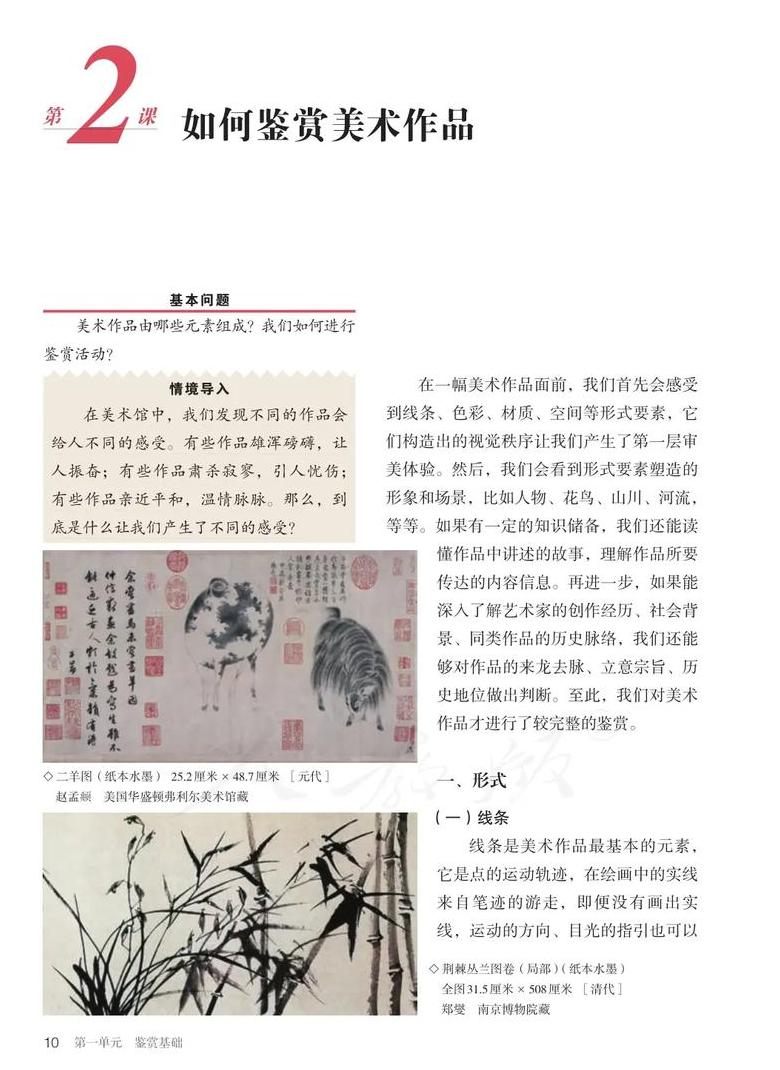 第2课
如何鉴赏美术作品
基本问题
美术作品由哪些元素组成？我们如何进行
鉴赏活动？
情境导入
在美术馆中，我们发现不同的作品会
给人不同的感受。有些作品雄浑磅礴，让
人振奋；有些作品肃杀寂寥，引人忧伤；
有些作品亲近平和，温情脉脉。那么，到
底是什么让我们产生了不同的感受？
余尝画马未尝画羊因
仲信求画余故戏为写生虽不
能逼近古人颇于气韵有得
子昂
◇二羊图（纸本水墨） 25.2厘米×48.7厘米 ［元代］
赵孟頫 美国华盛顿弗利尔美术馆藏
在一幅美术作品面前，我们首先会感受
到线条、色彩、材质、空间等形式要素，它
们构造出的视觉秩序让我们产生了第一层审
美体验。然后，我们会看到形式要素塑造的
形象和场景，比如人物、花鸟、山川、河流，
等等。如果有一定的知识储备，我们还能读
懂作品中讲述的故事，理解作品所要
传达的内容信息。再进一步，如果能
深入了解艺术家的创作经历、社会背
景、同类作品的历史脉络，我们还能
够对作品的来龙去脉、立意宗旨、历
史地位做出判断。至此，我们对美术
作品才进行了较完整的鉴赏。
一、形式
（一）线条
线条是美术作品最基本的元素，
它是点的运动轨迹，在绘画中的实线
来自笔迹的游走，即便没有画出实
线，运动的方向、目光的指引也可以
◇荆棘丛兰图卷（局部）（纸本水墨）
全图31.5厘米×508厘米 ［清代］
郑燮 南京博物院藏
10 第一单元 鉴赏基础